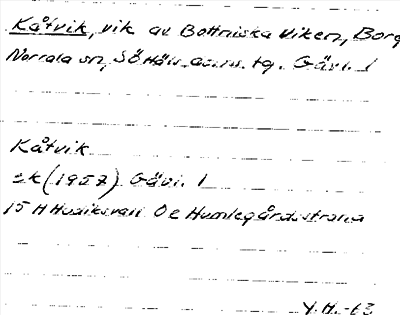 Kåtvik, vik av Bottniska Viken, Borg
Norrala sn, S. Häls. doms. tg. Gävl. l
Kåtvik
ek (1957) Gävl. l
15 H Hudiksvall 0 e Humlegårdsstrand
Y. H. -63